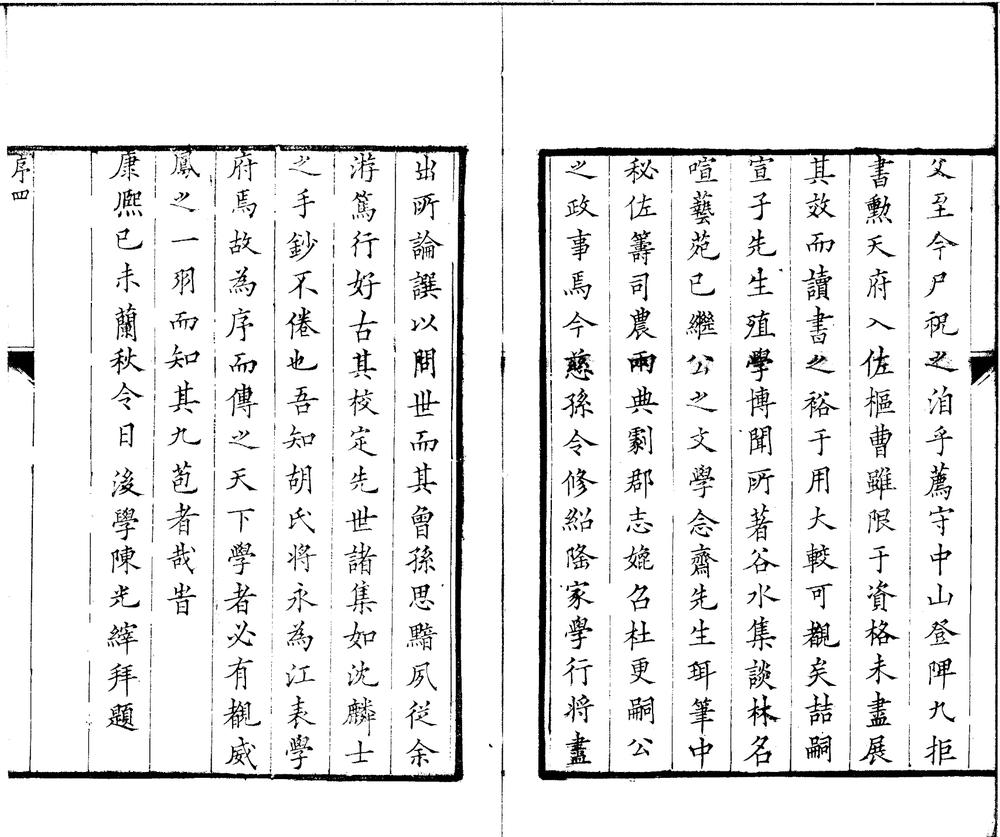 父至今尸祝之洎乎薦守中山登陴九拒
書勲天府入佐樞曹雖限于資格未盡展
其效而讀書之裕于用大較可覩矣喆嗣
宣子先生殖學博聞所著谷水集談林名
喧藝苑已繼公之文學念齋先生珥筆中
秘佐籌司農兩典劇郡志媲召杜更嗣公
之政事焉今慈孫令修紹隆家學行將盡
出所論譔以問世而其曾孫思黯夙從余
游篤行好古其校定先世諸集如沈麟士
之手鈔不倦也吾知胡氏將永為江表學
府焉故為序而傳之天下學者必有覩威
鳳之一羽而知其九苞者哉旹
康熈已未蘭秋令日後學陳光縡拜題
序四